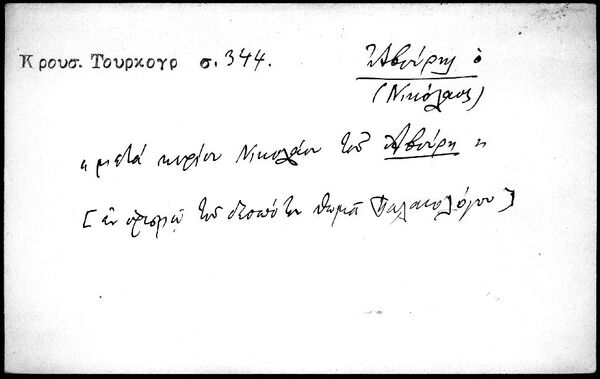 Κρουσ. Τουρκογρ σ. 344.
Ἀβούρης ὁ
(Νικόλαος)
"μετά κυρίου Νικολάου τοῦ Ἀβούρη"
[ἐν ὁρισμῷ τοῦ δεσπότου Θωμᾶ Παλαιολόγου]